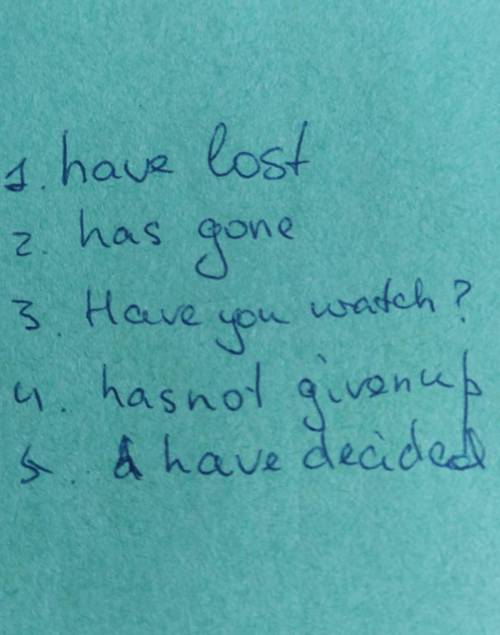 1. have lost
2. has gone
3. Have you watch?
4. has not given up
5. have decided